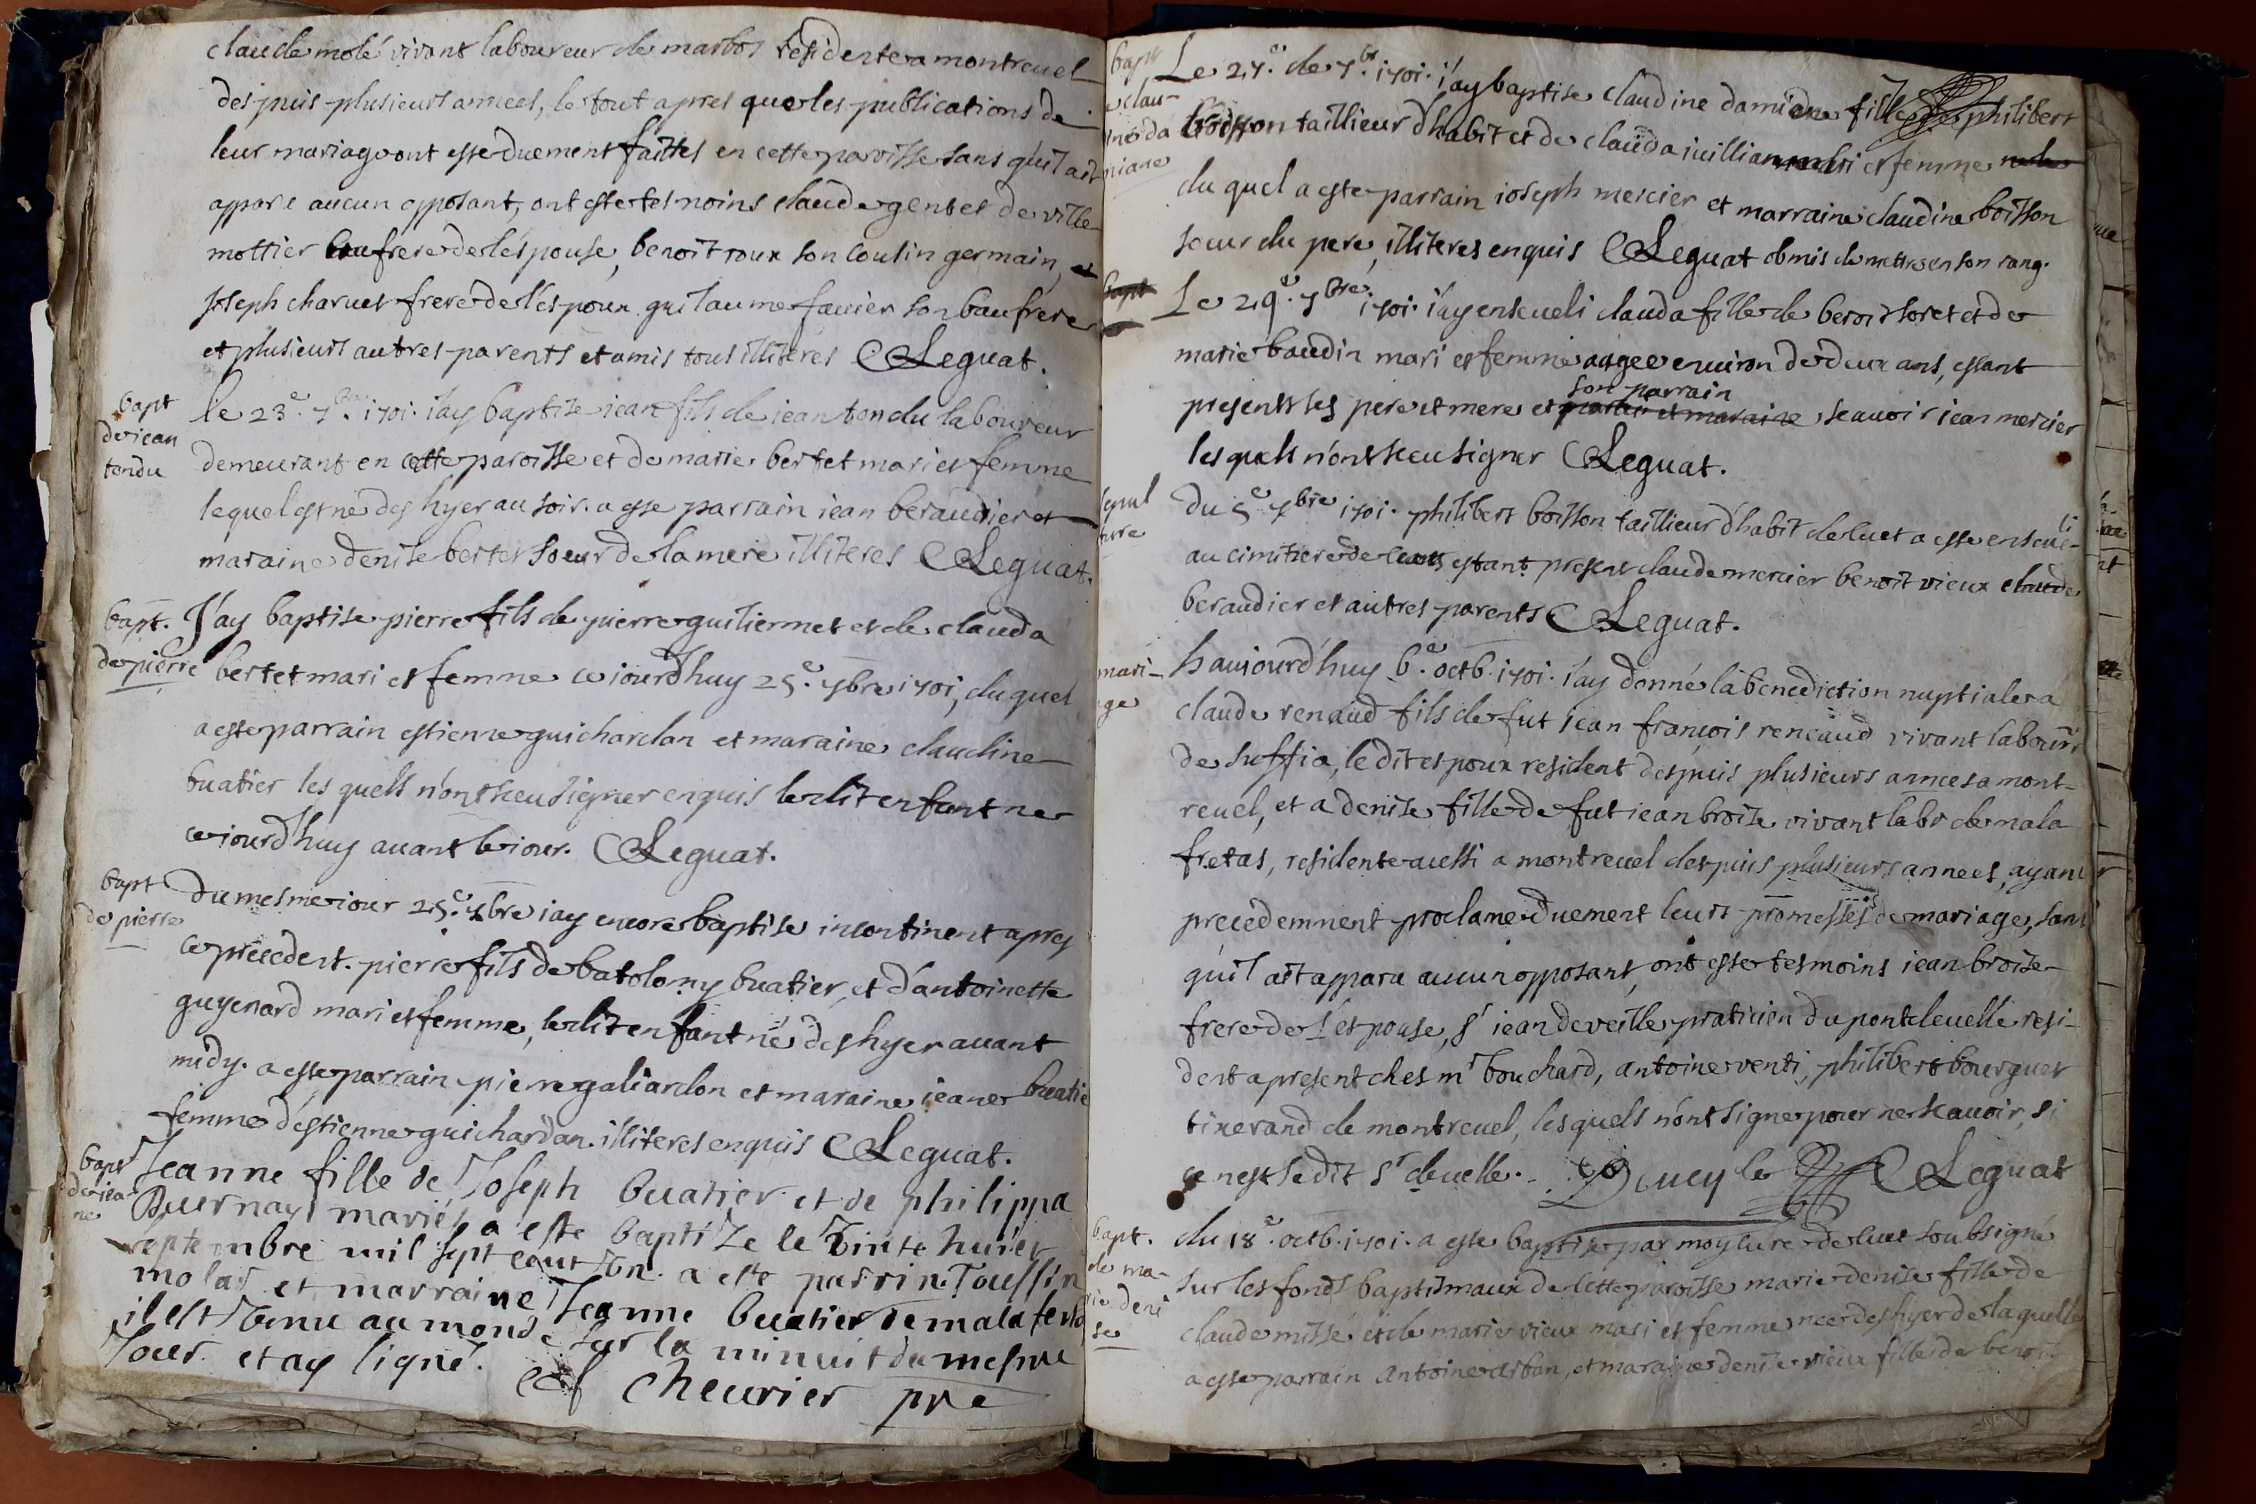 claude molé vivant laboureur de marbos residente a montrevel
despuis plusieurs annees, le tout apres que les publications de
leur mariage ont esté duement faittes en cette paroisse sans qu'il ait
apparu aucun opposant, ont esté tesmoins claude gentet de ville
mottier beaufrere de l'espouse, benoit roux son cousin germain, et
Joseph charvet frere de l'espoux guilaume favier son baufrere
et plusieurs autres parents et amis tous illiteres Leguat.
bapt
de iean
tondu
le 23e. 7bre. 1701. i'ay baptise iean fils de iean tondu laboureur
demeurant en cette paroisse et de marie bertet mari et femme
lequel est né des hyer au soir. a esse parrain iean beraudier et
maraine denise bertet soeur de la mere illiteres Leguat.
bapt.
de pierre
J'ay baptise pierre fils de pierre guiliermet et de clauda
bertet mari et femme ce iourd'huy 25e. 7bre 1701, du quel
a este parrain estienne guichardan et maraine claudine
buatier les quels n'ont sceu signer enquis le dit enfant ne
ce iourd'huy avant le iour. Leguat.
bapt
de pierre
Du mesme iour 25e. 7bre i'ay encore baptise incontinent apres
ce precedent. pierre fils de batolomy buatier, et d'antoinette
guyenard mari et femme, le dit enfant né des hyer avant
midy. a este parrain pierre galiardon et maraine ieane buatie
femme d'estienne guichardan. illiteres enquis Leguat.
bapt
de iea-
ne
Jeanne fille de Joseph buatier et de philippa
Buernay mariés a esté baptize le vinte huict
septembre mil sept cent un. a esté parrin Toussin
molas et marraine Jeanne buatier de malafreta
il est venu au monde sur la minuit du mesme
Jour et ay signé.
chevrier pre
bapt
e clau-
ine da
miane
Le 27e. de 7br. 1701. i'ay baptise claudine damiene fille de philibert
boisson taillieur d'habit et de clauda iuillian mari et femme
du quel a este parrain ioseph mercier et marraine claudine boisson
soeur du pere, illiteres enquis Leguat obmis de mettre en son rang.
bapt
Le 29e. 7bre. 1701. i'ay enseveli clauda fille de benoit soret et de
marie baudin mari et femme aagee environ de deux ans, estant
son parrain
presents ses pere et mere et parain et maraine scavoir iean mercier
les quels n'ont sceu signer Leguat.
sepul
ture
du 5e 7bre 1701. philibert boisson taillieur d'habit de luet a esse enseve-
li
au cimitiere de ceans estant present claude mercier benoit vieux claude
beraudier et autres parents Leguat.
mari-
ge
h aujourd'huy 6.e octb. 1701. i'ay donné la benediction nuptiale a
claude renaud fils de fut iean françois renaud vivant labour
de suffia, le dit espoux resident despuis plusieurs annees a mont-
revel, et a denise fille de fut iean broise vivant labr de mala
fretas, residente aussi a montrevel despuis plusieurs annees, ayant
precedemnent proclame duement leurs promesses de mariage, sans
qu'il ait apparu aucun opposant, ont esse tesmoins iean broise
frere de l'espouse, sr iean deveille praticien du pontdevelle resi-
dent a present ches mr bouchard, antoine venti, philibert bourguet
tixerand de montrevel, les quels n'ont signe pour ne scavoir, si
ce n'est le dit sr develle. Leguat
bapt.
de ma-
rie deni
se
du 18e. octb. 1701. a esse baptise par moy cure de luet soubsigné
sur les fonds baptismaux de cette paroisse marie denise fille de
claude missé et de marie vieux mari et femme nee des hyer de laquelle
a este parrain antoine arban, et maraine denise vieux fille de benoit